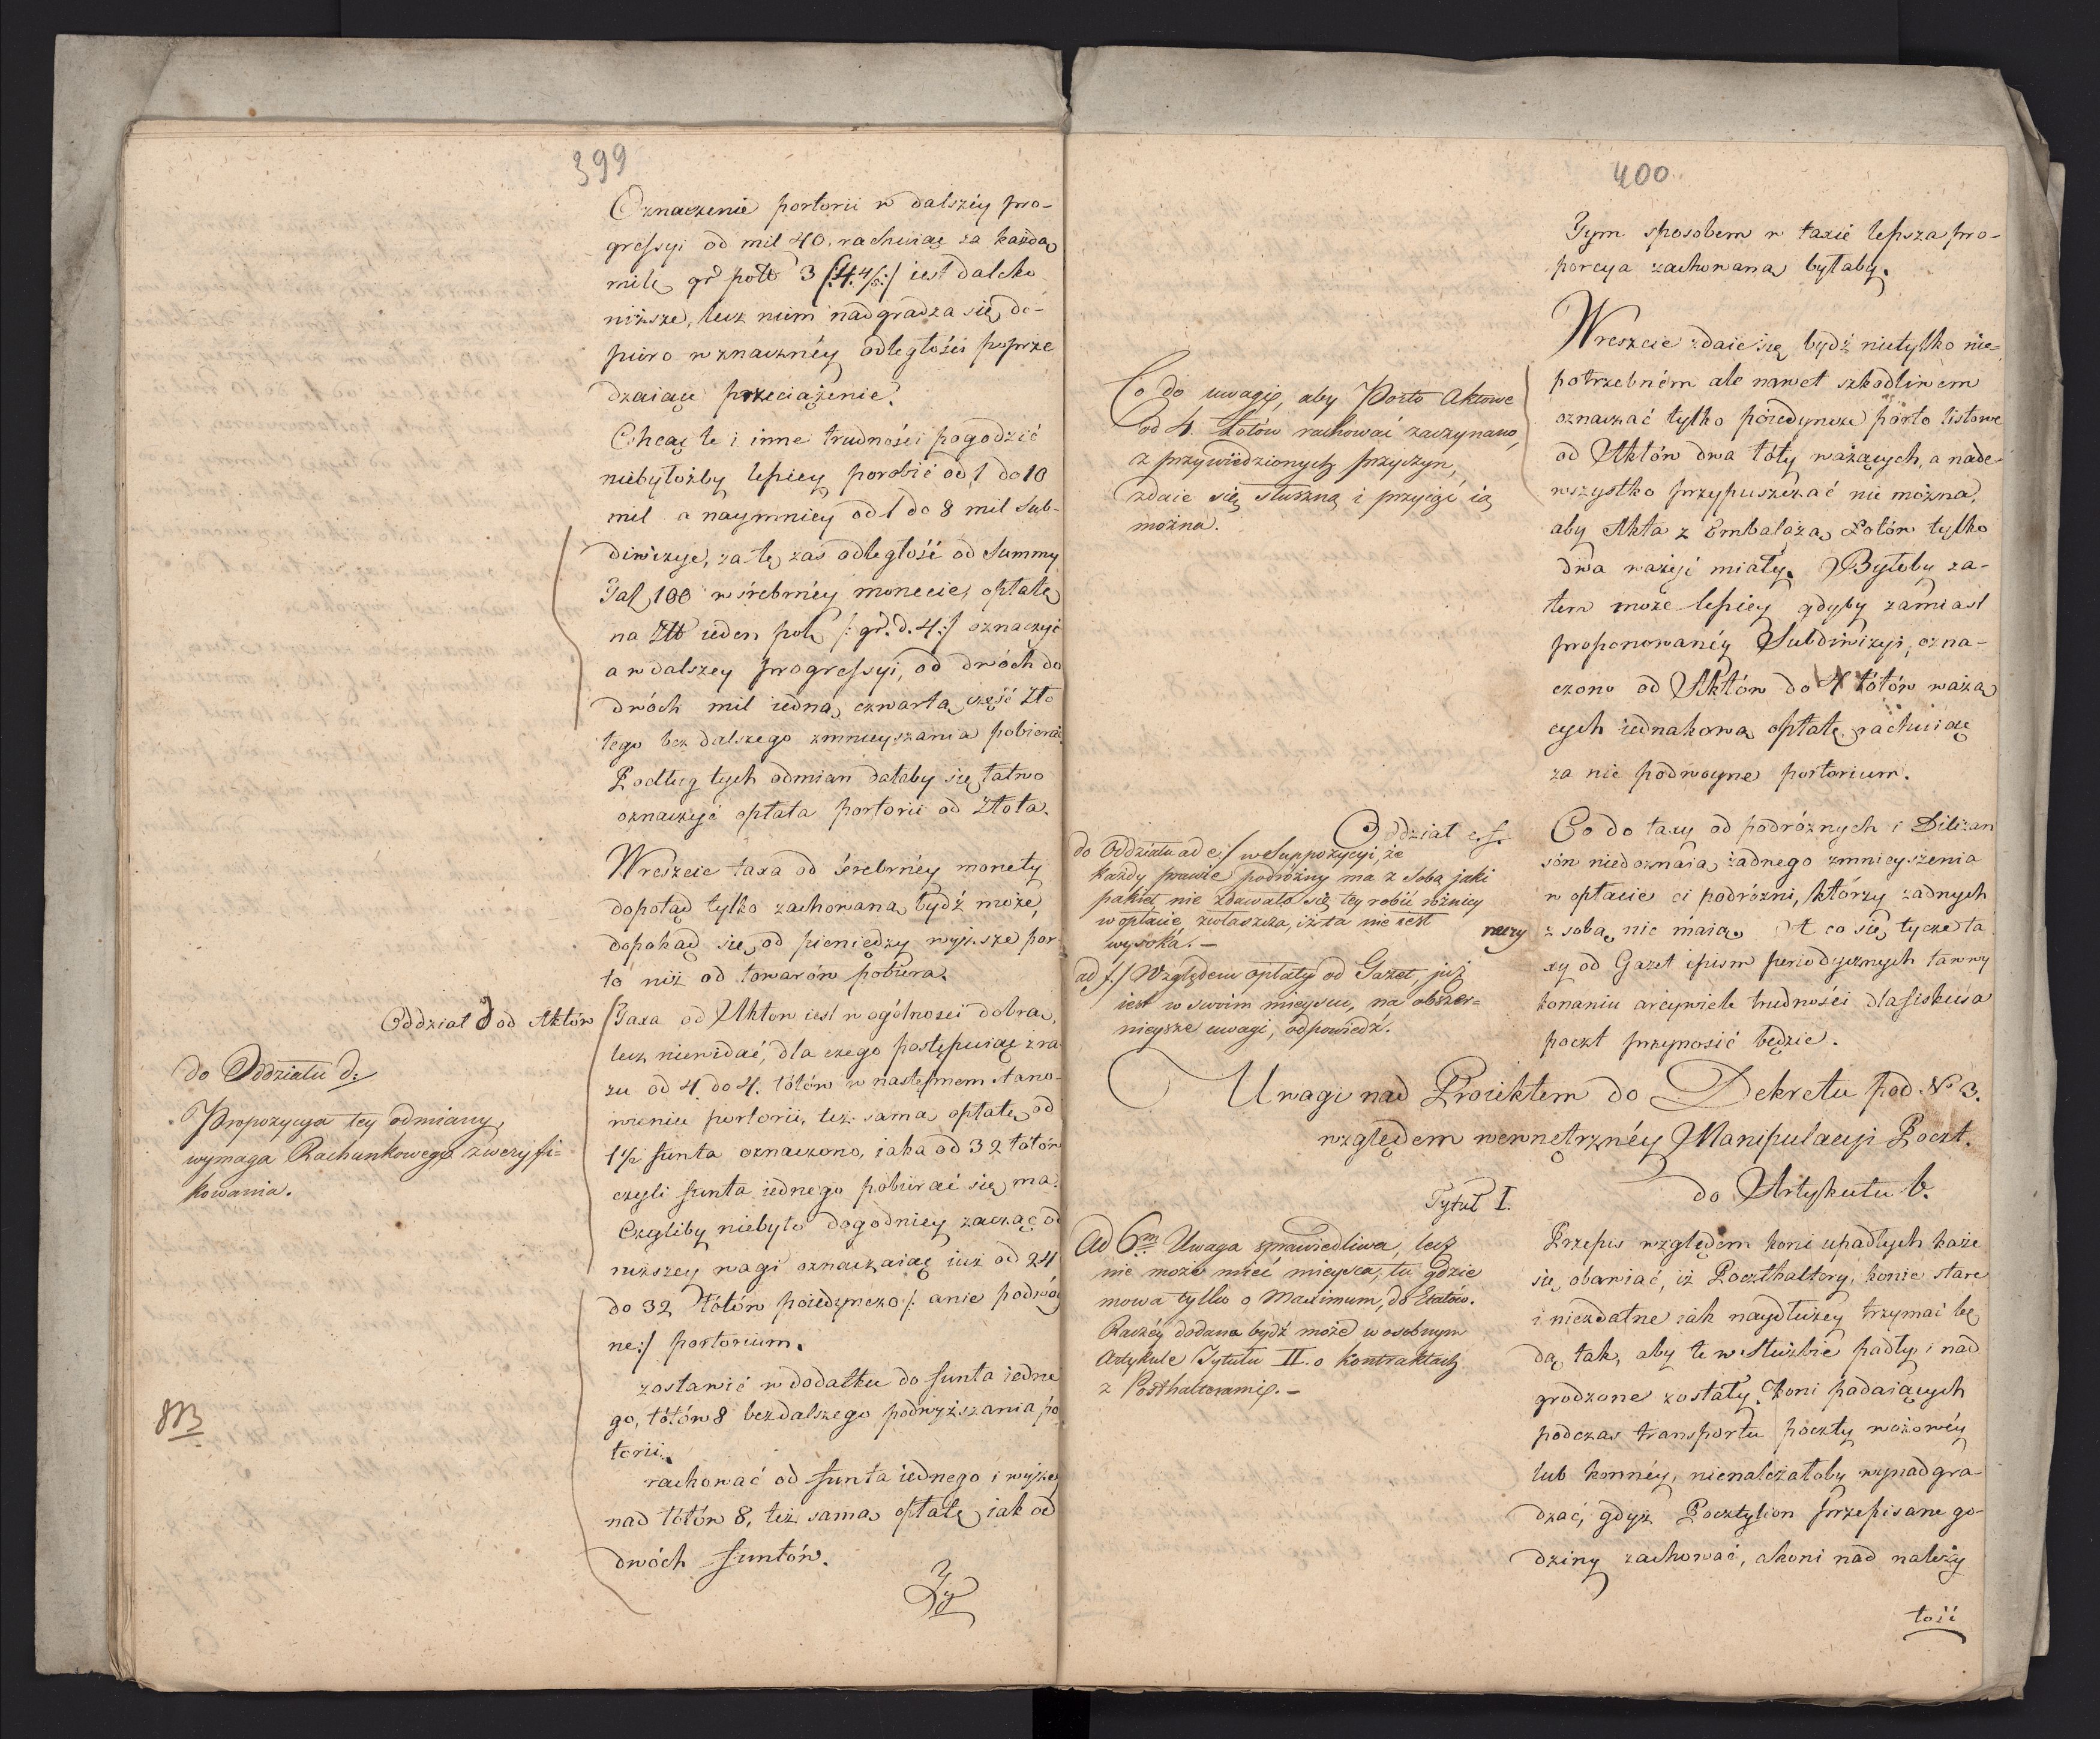 399
Oznaczenie portorii w dalszéy pro-
gressyi od mil 40. rachuiąc za każdą
milę gr pol 3 /:4. 4/5:/ iest daleko
niższe, lecz nim nadgradza się do-
piero w znacznéy odległości poprze
dzaiące przeciążenie.
Chcąc te i inne trudności pogodzić
niebyłożby lepiey porobić od 1 do 10
mil a naymniey od 1 do 8 mil Sub-
diwizye, za tę zaś odległość od Summy
Tal 100 w śrebrnéy monecie, opłatę
na Złł ieden pol /:gr. d. 4:/ oznaczyć
a w dalszey progressyi, od dwóch do
dwóch mil iedną czwartą część Zło
tego bez dalszego zmnieyszania pobierać.
Podług tych odmian dałaby się łatwo
oznaczyć opłata portorii od Złota.
Wreszcie taxa od śrebrnéy monety
dopotąd tylko zachowana bydź może,
dopokąd się od pieniędzy wyższe por-
to niż od towarów pobiera.
Oddział d od Aktów
Taxa od Aktow iest w ogólności dobra,
lecz niewidać, dla czego postępuiąc zra
zu od 4 do 4. łótów w następnem stano-
wieniu portorii, też samą opłatę od
1 1/2 funta oznaczono, iaka od 32 łótów
czyli funta iednego pobierać się ma.
Czyliby niebyło dogodniey zacząć od
niższey wagi oznaczaiąc iuż od 24
do 32 łótów poiedyncze /: a nie podwóy
ne:/ portorium.
zostawić w dodatku do funta iedne
go, łótów 8 bez dalszego podwyższania po
torii.
rachować od funta iednego i wyżey
nad łótów 8, też samą opłatę iak od
dwóch funtów.
Ty
do Oddziału d:
Propozycya tey odmiany,
wymaga Rachunkowego zweryfi=
kowania.
NB
400
Tym sposobem w taxie lepsza pro-
porcya zachowana byłaby.
Wreszcie zdaie się bydź nietylko nie-
potrzebném ale nawet szkodliwem
oznaczać tylko poiedyncze porto listowe
od Aktów dwa łóty ważących, a nade
wszystko przypuszczać nie można,
aby Akta z Embalażą Łotów tylko
dwa ważyć miały. Byłoby za-
tem może lepiey gdyby zamiast
proponowanéy Subdiwizyi, ozna-
czono od Aktów do 4 łótów ważą
cych iednakową opłatę rachuiąc
za nie podwoyne portorium.
Co do uwagi, aby Porto Aktowe
od 4. Łotów rachować zaczynano,
z przywiedzionych przyczyn,
zdaie się słuszną i przyiąć ią
można.
Oddział e. f.
Co do taxy od podróżnych i Diliżan
sów niedoznaią żadnego zmnieyszenia
w opłacie ci podróżni, którzy żadnych
rzeczy z sobą nie maią. A co się tycze ta
xy od Gazet i pism periodycznych ta w wy
konaniu arcywiele trudności dla fiskusa
poczt przynosić będzie.
do Oddziału ad e/ w Suppozycyi, że
każdy prawie podróżny ma z sobą jaki
pakiet nie zdawało się tey robić różnicy
w opłacie, zwłaszcza, iż ta nie iest
wysoka. —
ad f./ Względem opłaty od Gazet, już
iest w swoim mieyscu, na obszer=
nieysze uwagi, odpowiedź.
Uwagi nad Proiektem do Dekretu pod No 3.
względem wewnętrznéy Manipulacyi Poczt.
Tytuł I.
do Artykułu 6.
Przepis względem koni upadłych każe
się obawiać, iż Poczthaltery, konie stare
i niezdatne iak naydłużey trzymać bę
dą, tak, aby te w służbie padły i nad
grodzone zostały. Koni padaiących
podczas transportu poczty wozowéy
lub konnéy, nienależałoby wynadgra-
dzać, gdyż Pocztylion przepisane go-
dziny zachować, a koni nad należy
tość
Ad 6m Uwaga sprawiedliwa, lecz
nie może mieć mieysca, tu gdzie
mowa tylko o Maximum, do Etatów.
Raczéy dodana bydź może w osobnym
Artykule Tytułu II. o kontraktach
z Posthalterami. —